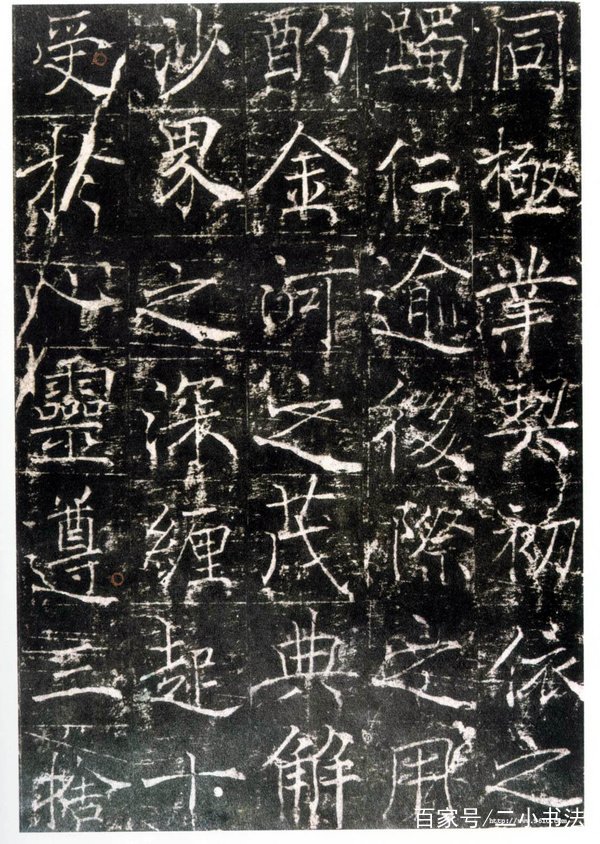 同極業契初依之
躅仁逾後際之用
酌金河之茂典解
沙界之深纏起十
受於心靈遵三
百家号/二小书法